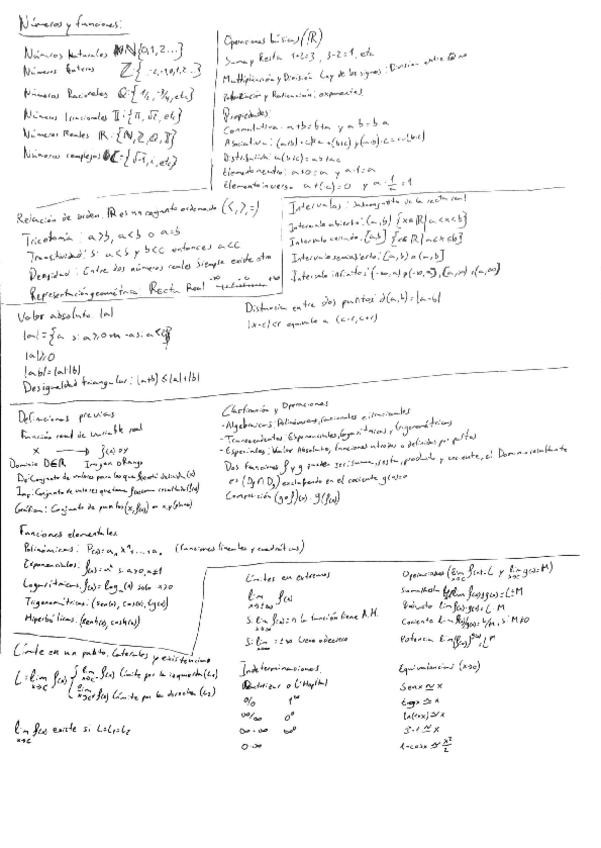 Números y funciones:
Números Naturales N {0,1,2...}
Números Enteros Z:{...-1,0,1,2...}
Números Racionales Q:{1/2, -3/4, etc}
Números Irracionales I:{π, √2, etc}
Números Reales R:{N,Z,Q,I}
Números complejos C:{√-1, i, etc}
Operaciones básicas (R)
Suma y Resta 1+2=3, 3-2=1, etc
Multiplicación y División Ley de los signos: División entre 0 no
Potenciación y Radicación: exponentes
Propiedades:
Conmutativa: a+b=b+a y a b = b a
Asociativa: (a+b)+c=a+(b+c) y
Distributiva a(b+c)=ab+ac
Elemento neutro: a+0=a y a·1=a
Elemento inverso a+(-a)=0 y a·1/a=1
Relación de orden. R es un conjunto ordenado (<,>,=)
Tricotomía: a>b, a<b o a=b
Transitividad: si a<b y b<c entonces a<c
Densidad: Entre dos números reales siempre existe otro
Representación geométrica Recta Real
Intervalos: Subconjuntos de la recta real
Intervalo abierto: (a,b) {x∈R| a<x<b}
Intervalo cerrado: [a,b] {x∈R| a≤x≤b}
Intervalo semiabierto: [a,b) o (a,b]
Intervalo infinito: (-∞,a) o (-∞,a], [a,∞) o (a,∞)
Valor absoluto |a|
|a|={a si a≥0 -a si a<0}
|a|≥0
|ab|=|a||b|
Desigualdad triangular: |a+b|≤|a|+|b|
Distancia entre dos puntos: d(a,b)=|a-b|
|x-c|<r equivale a (c-r, c+r)
Definiciones previas
Función real de variable real
x → f(x) o y
Dominio D∈R Imagen o Rango
D: Conjunto de valores para los que f está definida (x)
Img: Conjunto de valores que toma f como resultado f(x)
Gráfica: Conjunto de puntos (x, f(x)) en el plano
Clasificación y Operaciones
- Algebraicas: Polinómicas, racionales e irracionales
- Trascendentes: Exponenciales, logarítmicas y trigonométricas
- Especiales: Valor Absoluto, funciones a trozos o definidas por partes
Dos funciones f y g pueden ser: suma, resta, producto y cociente, el Dominio resultante
es (Df ∩ Dg) excluyendo en el cociente g(x)=0
Composición (g∘f)(x)=g(f(x))
Funciones elementales
Polinómicas: P(x)=aₙxⁿ+...+a₀ (funciones lineales y cuadráticas)
Exponenciales: f(x)=aˣ si a>0, a≠1
Logarítmicas, f(x)=logₐ(x) solo x>0
Trigonométricas: (sen(x), cos(x), tg(x))
Hiperbólicas: (senh(x), cosh(x))
Límite en un punto, laterales y existencia
L=lim x→c f(x) { lim x→c⁻ f(x) límite por la izquierda (L₁)
lim x→c⁺ f(x) límite por la derecha (L₂)
lim x→c f(x) existe si L=L₁=L₂
Límites en extremos
lim x→±∞ f(x)
Si lim x→∞ = n la función tiene A.H.
Si lim x→∞ = ±∞ crece o decrece
Indeterminaciones
o L'Hôpital
0/0 1^∞
∞/∞ 0⁰
∞-∞ ∞⁰
0·∞
Operaciones (lim x→c f(x)=L y lim x→c g(x)=M)
Suma/Resta lim f(x)±g(x)=L±M
Producto lim f(x)·g(x)=L·M
Cociente lim f(x)/g(x)=L/M, si M≠0
Potencia lim f(x)^g(x)=L^M
Equivalencias (x→0)
Sen x ≈ x
tg x ≈ x
ln(1+x) ≈ x
1-cos x ≈ x²/2